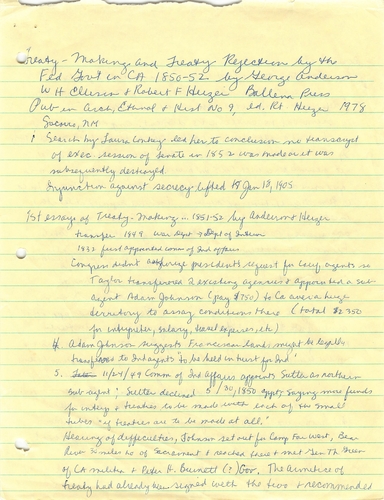 Treaty-Making and Treaty Rejection by the
Fed Gov't in CA 1850-52 by George Anderson
W H Ellison & Robert F Heizer Ballena Press
Pub in Arch, Ethnol & Hist No 9, ed. Rt Heizer 1978
Socorro, NM
1 Search by Laura led her to conclusion no transcript
of exec. session of Senate in 1852 was made or it was
subsequently destroyed
Injunction against secrecy lifted Jan 18, 1905
1st essay of Treaty-Making ... 1851-52 by Anderson & Heizer
transfer 1849 War Dept → Dept of Interior
1832 first appointed Comm of Ind Affairs
Congress didn't authorize president's request for Calif. agents so
Taylor transferred 2 existing agencies & appointed a sub-
agent Adam Johnson (pay $750) to CA over a huge
territory to assay conditions there (total $2,350
for interpreter, salary, travel expenses, etc)
4 Adam Johnson suggests Franciscan lands might be legally
transferred to Ind agents "to be held in trust for Ind"
5. 11/24/49 Comm of Ind Affairs appoints Sutter as northern
sub-agent; Sutter declined 5/30/1850 saying more funds
for interp & treaties to be made with each of the small
tribes "if treaties are to be made at all."
Hearing of difficulties, Johnson set out for Camp Far West, Bear
River 35 miles no of Sacramento & reached there & met Gen Th Green
of CA militia & Peter H. Burnett (?) Gov. The Armistice of
treaty had already been signed with the two & recommended